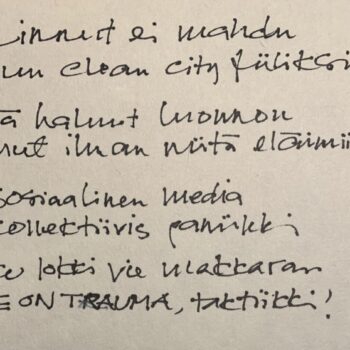 Linnut ei mahdu
un clean city fiiliksi
ä halunt luonnon
nut ilman niitä eläimii
sosiaalinen media
collektiivis paniikki
lokki vie makkaran
E ON TRAUMA, taktiikki!